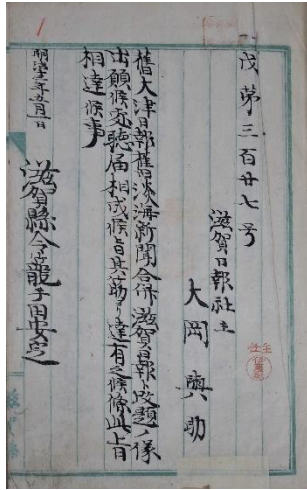 戊第三百廿七号
滋賀日報社主
大岡輿助
舊大津日報舊淡海新聞合併滋賀日報ト改題ノ儀
出願候処聴届相成候旨其筋ヨリ達有之候條此旨
相達候事
明治十二年五月一日
滋賀縣令籠手田安定
主任